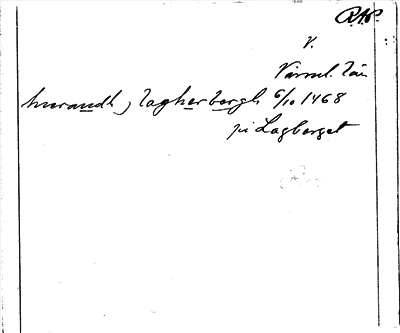 RAP.
V.
Värml. län
hwrandh, Lagherbergh 6/10 1468
på Lagberget